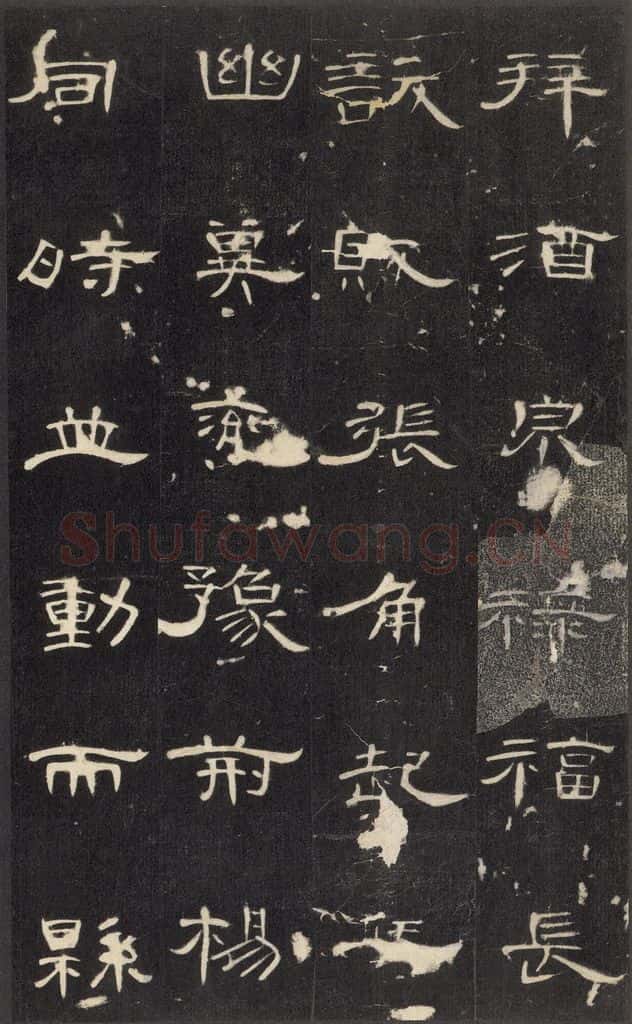 拜酒泉祿福長
訞賊張角起兵
幽冀兗豫荊楊
同時並動而縣
Shufawang.CN